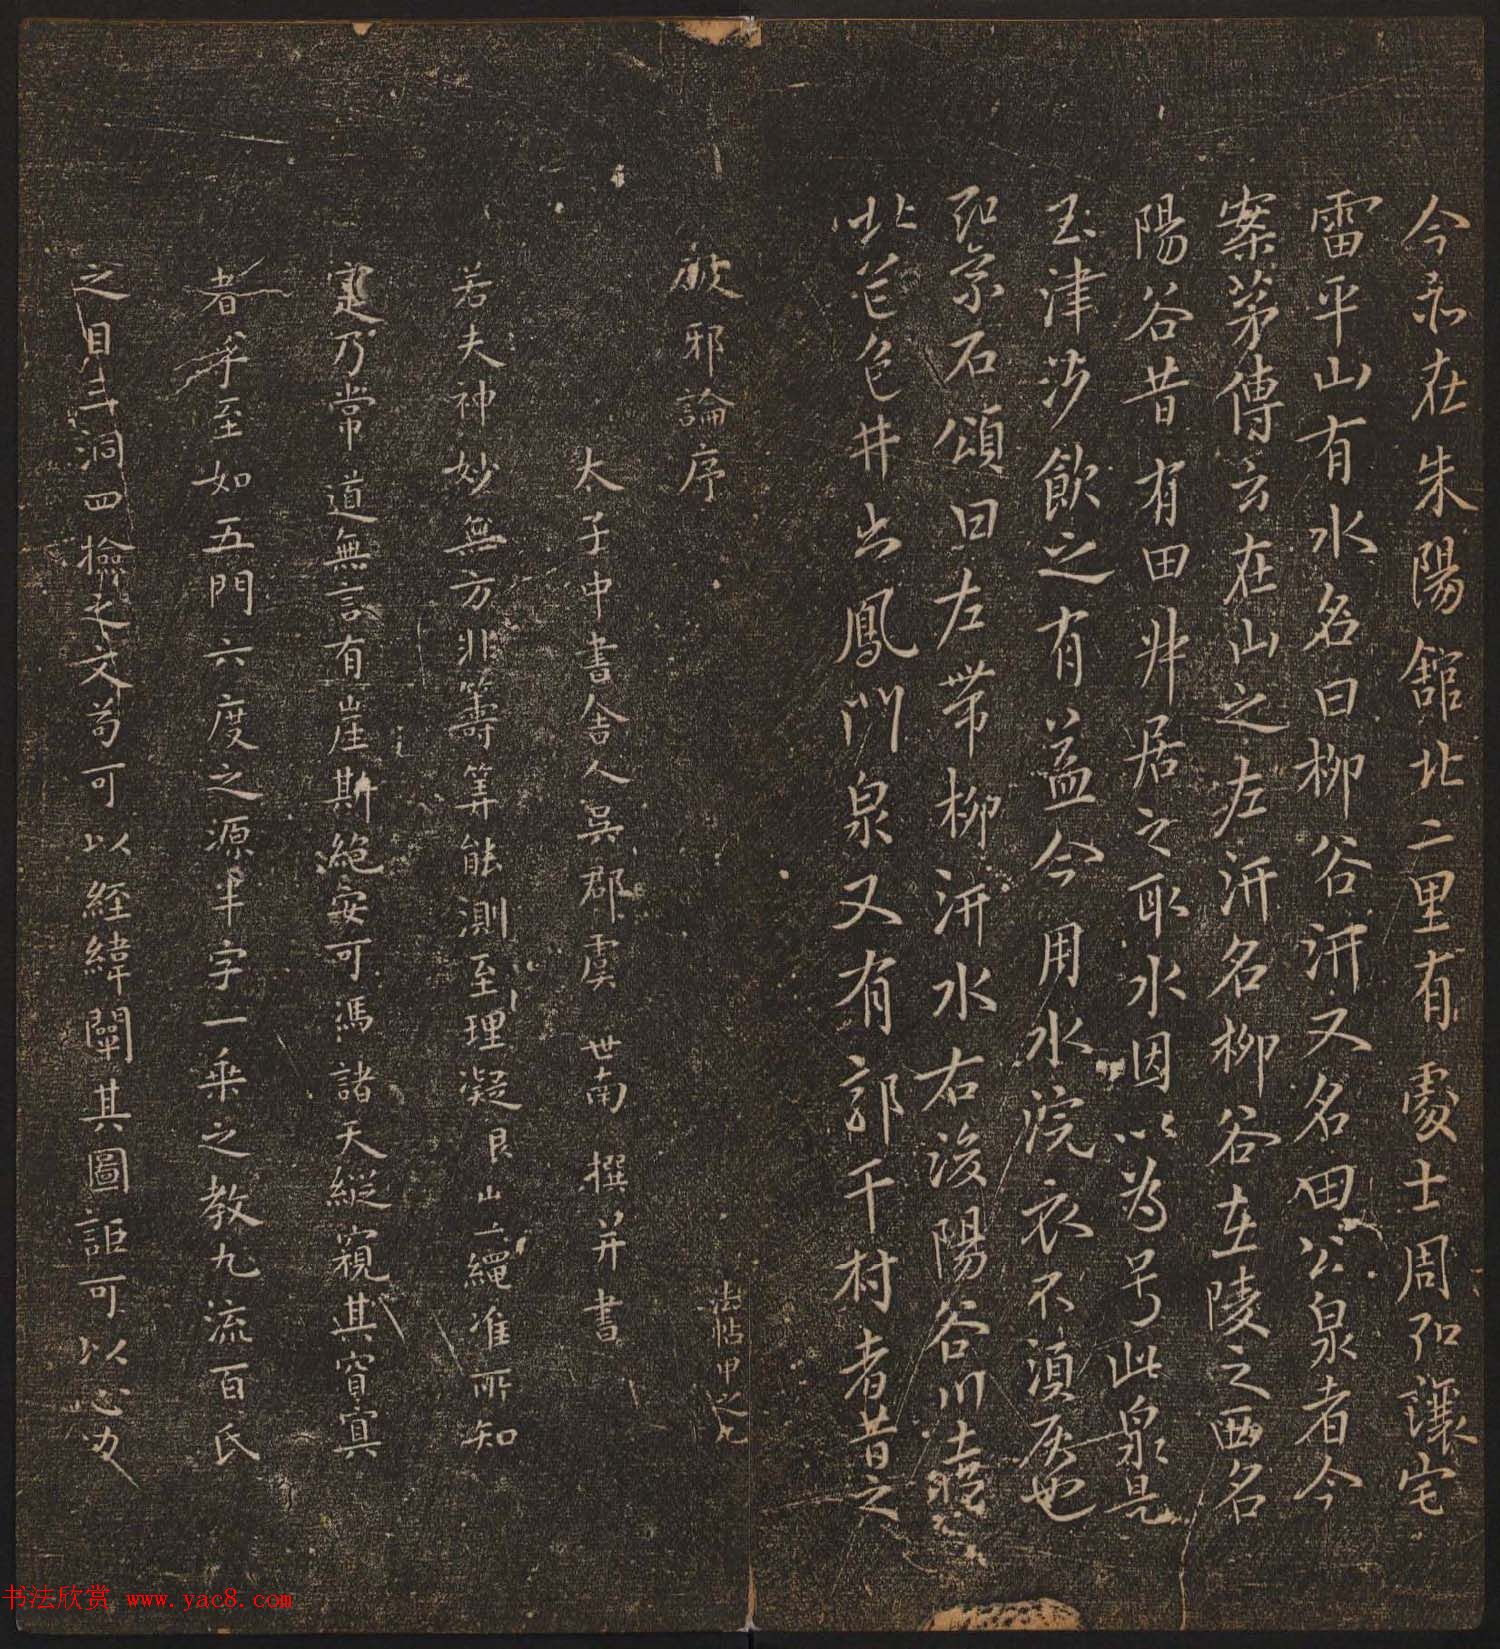 今亦在朱陽舘北二里有處士周弘讓宅
雷平山有水名曰柳谷汧又名田公泉者今
案茅傳云在山之左汧名柳谷在陵之西名
陽谷昔有田叔居之取水因以為号此泉是
玉津沙飲之有益今用水浣衣不湏灰也
弘景石頌曰左帶柳汧水右浚陽谷川
此芒色井出鳳門泉又有郭千村者昔之
法帖甲之九
破邪論序
太子中書舍人吳郡虞世南撰并書
若夫神妙無方非籌筭能測至理凝良山一繩准所知
寔乃常道無言有崖斯絕安可馮諸天縱窺其窅寘
者乎至如五門六度之源半字一乘之教九流百氏
之目三洞四檢之文苟可以經緯闡其圖詎可以心力
书法欣赏 www.yac8.com